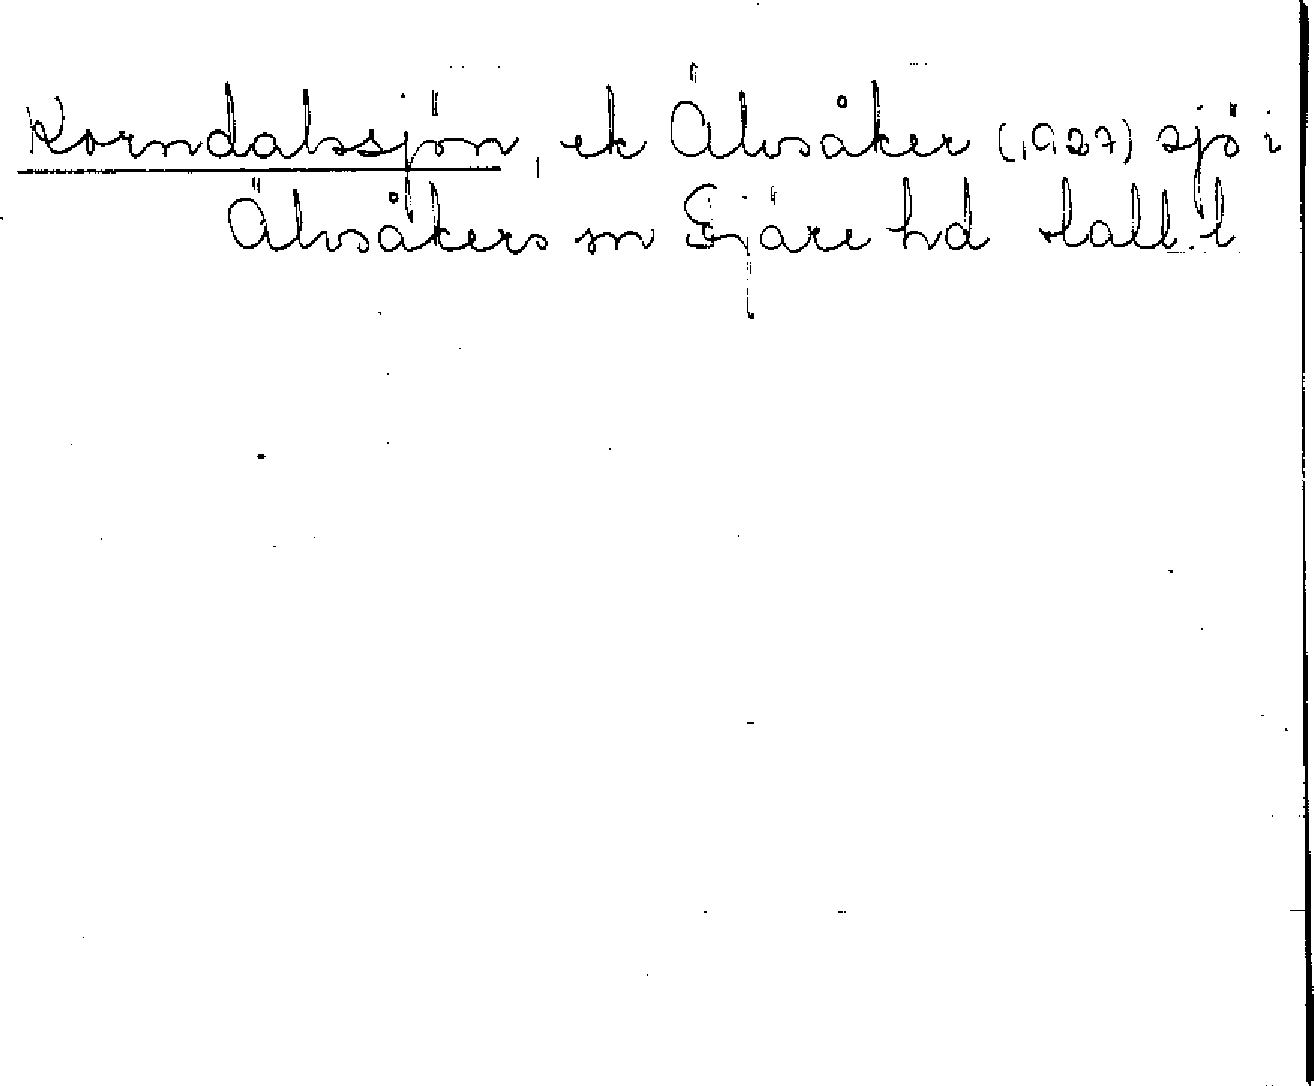 Korndalssjön, ek Älvsåker (1927) sjö i
Älvsåkers sn Fjäre hd Hall. l